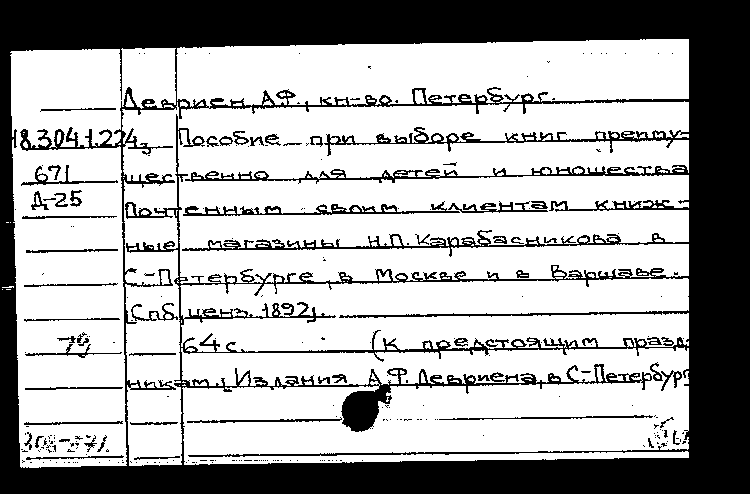 Девриен, А.Ф., кн-во. Петербург.
18.304.1.224з Пособие при выборе книг преиму-
671 щественно для детей и юношества
Д-25 Почтенным своим клиентам книж-
ные магазины Н.П. Карабасникова в
С.-Петербурге, в Москве и в Варшаве.
[Спб, ценз. 1892].
79 64 с. (К предстоящим празд-
никам. [Издания А.Ф. Девриена, в С.-Петербург